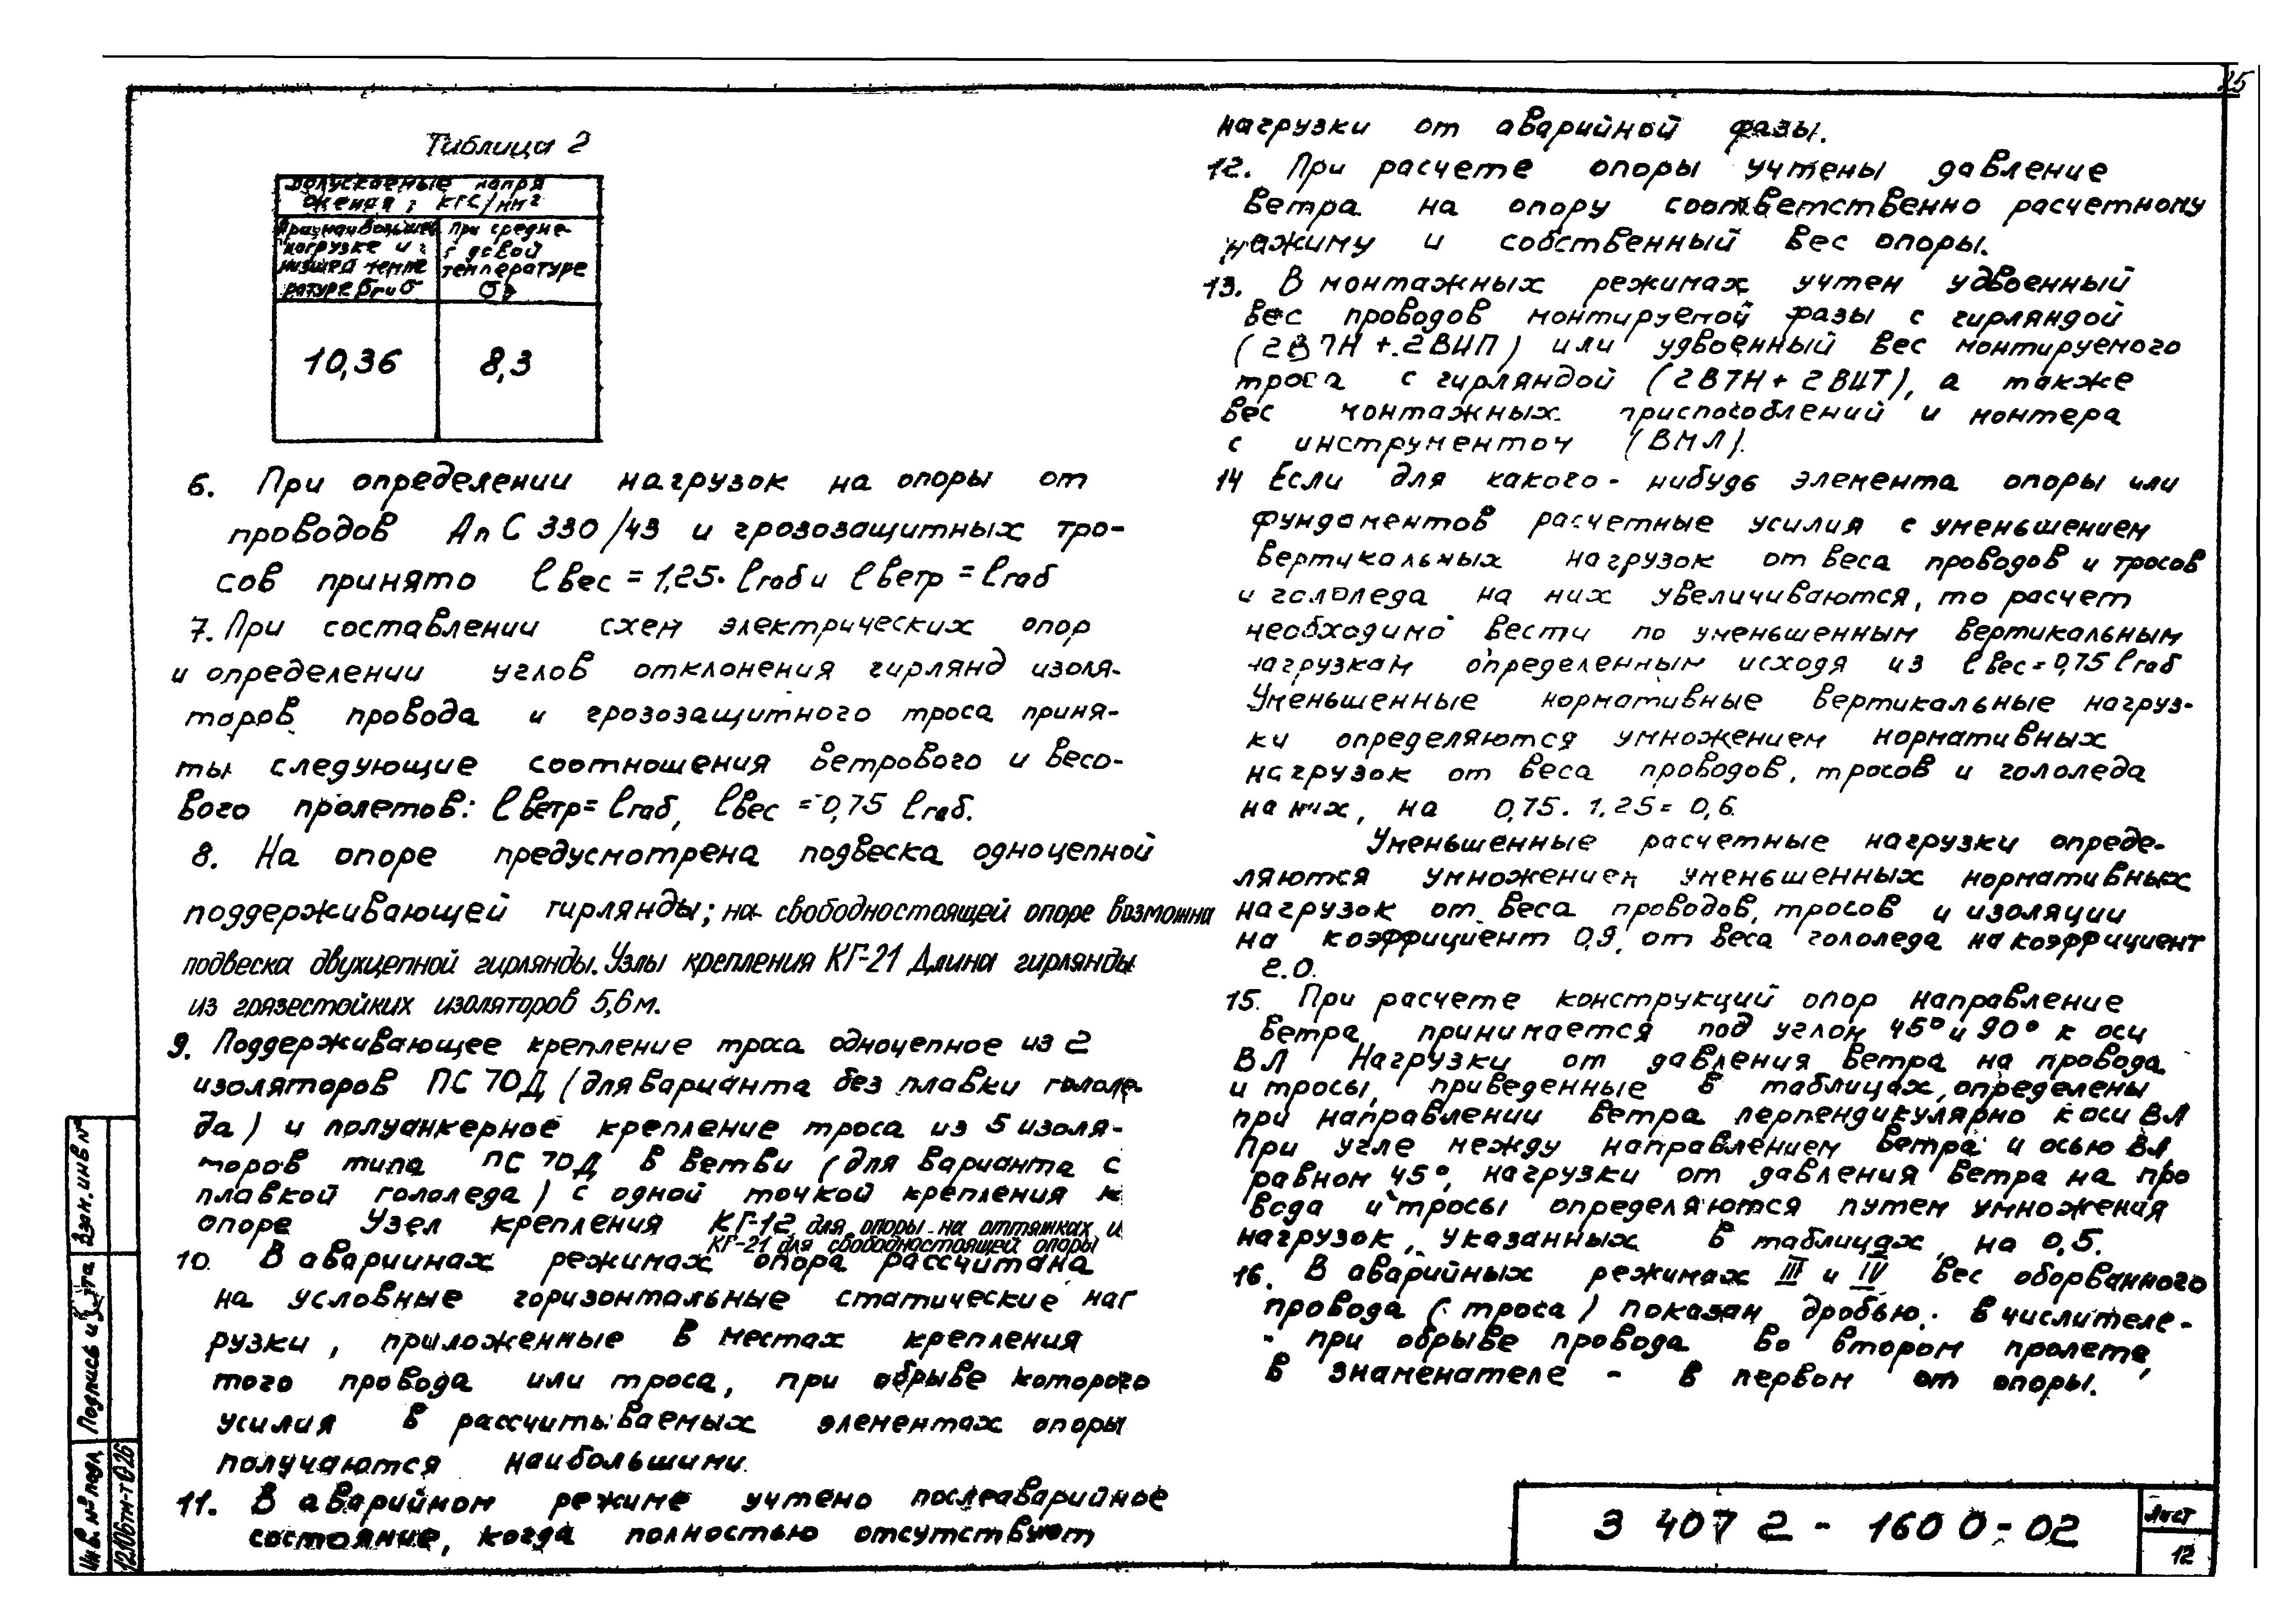 25
Таблица 2
Допускаемые напря
жения, кгс/мм²
При наибольшей
нагрузке и
низшей темпе
ратуре σг и σ
При средне-
годовой
температуре
σэ
10,36
8,3
6. При определении нагрузок на опоры от
проводов АпС 330/43 и грозозащитных тро-
сов принято ℓвес = 1,25. ℓгаб и ℓветр = ℓгаб
7. При составлении схем электрических опор
и определении углов отклонения гирлянд изоля-
торов провода и грозозащитного троса приня-
ты следующие соотношения ветрового и весо-
вого пролетов: ℓветр = ℓгаб, ℓвес = 0,75 ℓгаб.
8. На опоре предусмотрена подвеска одноцепной
поддерживающей гирлянды; на свободностоящей опоре возможна
подвеска двухцепной гирлянды. Узлы крепления КГ-21 Длина гирлянды
из грязестойких изоляторов 5,6м.
9. Поддерживающее крепление троса одноцепное из 2
изоляторов ПС 70Д (для варианта без плавки гололе-
да) и полуанкерное крепление троса из 5 изоля-
торов типа ПС 70Д в ветви (для варианта с
плавкой гололеда) с одной точкой крепления к
опоре Узел крепления КГ-12 для опоры на оттяжках и
КГ-21 для свободностоящей опоры
10. В аварииных режимах опора рассчитана
на условные горизонтальные статические наг
рузки, приложенные в местах крепления
того провода или троса, при обрыве которого
усилия в рассчитываемых элементах опоры
получаются наибольшими.
11. В аварийном режиме учтено послеаварийное
состояние, когда полностью отсутствуют
нагрузки от аварийной фазы.
12. При расчете опоры учтены давление
ветра на опору соответственно расчетному
режиму и собственный вес опоры.
13. В монтажных режимах учтен удвоенный
вес проводов монтируемой фазы с гирляндой
(2В7Н + 2ВИП) или удвоенный вес монтируемого
троса с гирляндой (2В7Н + 2ВИТ), а также
вес монтажных приспособлений и монтера
с инструментом (ВМЛ).
14 Если для какого-нибудь элемента опоры или
фундаментов расчетные усилия с уменьшением
вертикальных нагрузок от веса проводов и тросов
и гололеда на них увеличиваются, то расчет
необходимо вести по уменьшенным вертикальным
нагрузкам определенным исходя из ℓвес = 0,75 ℓгаб
Уменьшенные нормативные вертикальные нагруз-
ки определяются умножением нормативных
нагрузок от веса проводов, тросов и гололеда
на них, на 0,75. 1,25 = 0,6.
Уменьшенные расчетные нагрузки опреде-
ляются умножением уменьшенных нормативных
нагрузок от веса проводов, тросов и изоляции
на коэффициент 0,9, от веса гололеда на коэффициент
2.0.
15. При расчете конструкций опор направление
ветра принимается под углом 45° и 90° к оси
ВЛ Нагрузки от давления ветра на провода
и тросы, приведенные в таблицах, определены
при направлении ветра перпендикулярно к оси ВЛ
При угле между направлением ветра и осью ВЛ
равном 45°, нагрузки от давления ветра на про
вода и тросы определяются путем умножения
нагрузок, указанных в таблицах, на 0,5.
16. В аварийных режимах III и IV вес оборванного
провода (троса) показан дробью. в числителе-
- при обрыве провода во втором пролете,
в знаменателе - в первом от опоры.
Взам. инв №
Подпись и дата
Инв. № подл.
12106тм-т0 26
3 407 2 - 160 0-02
Лист
12